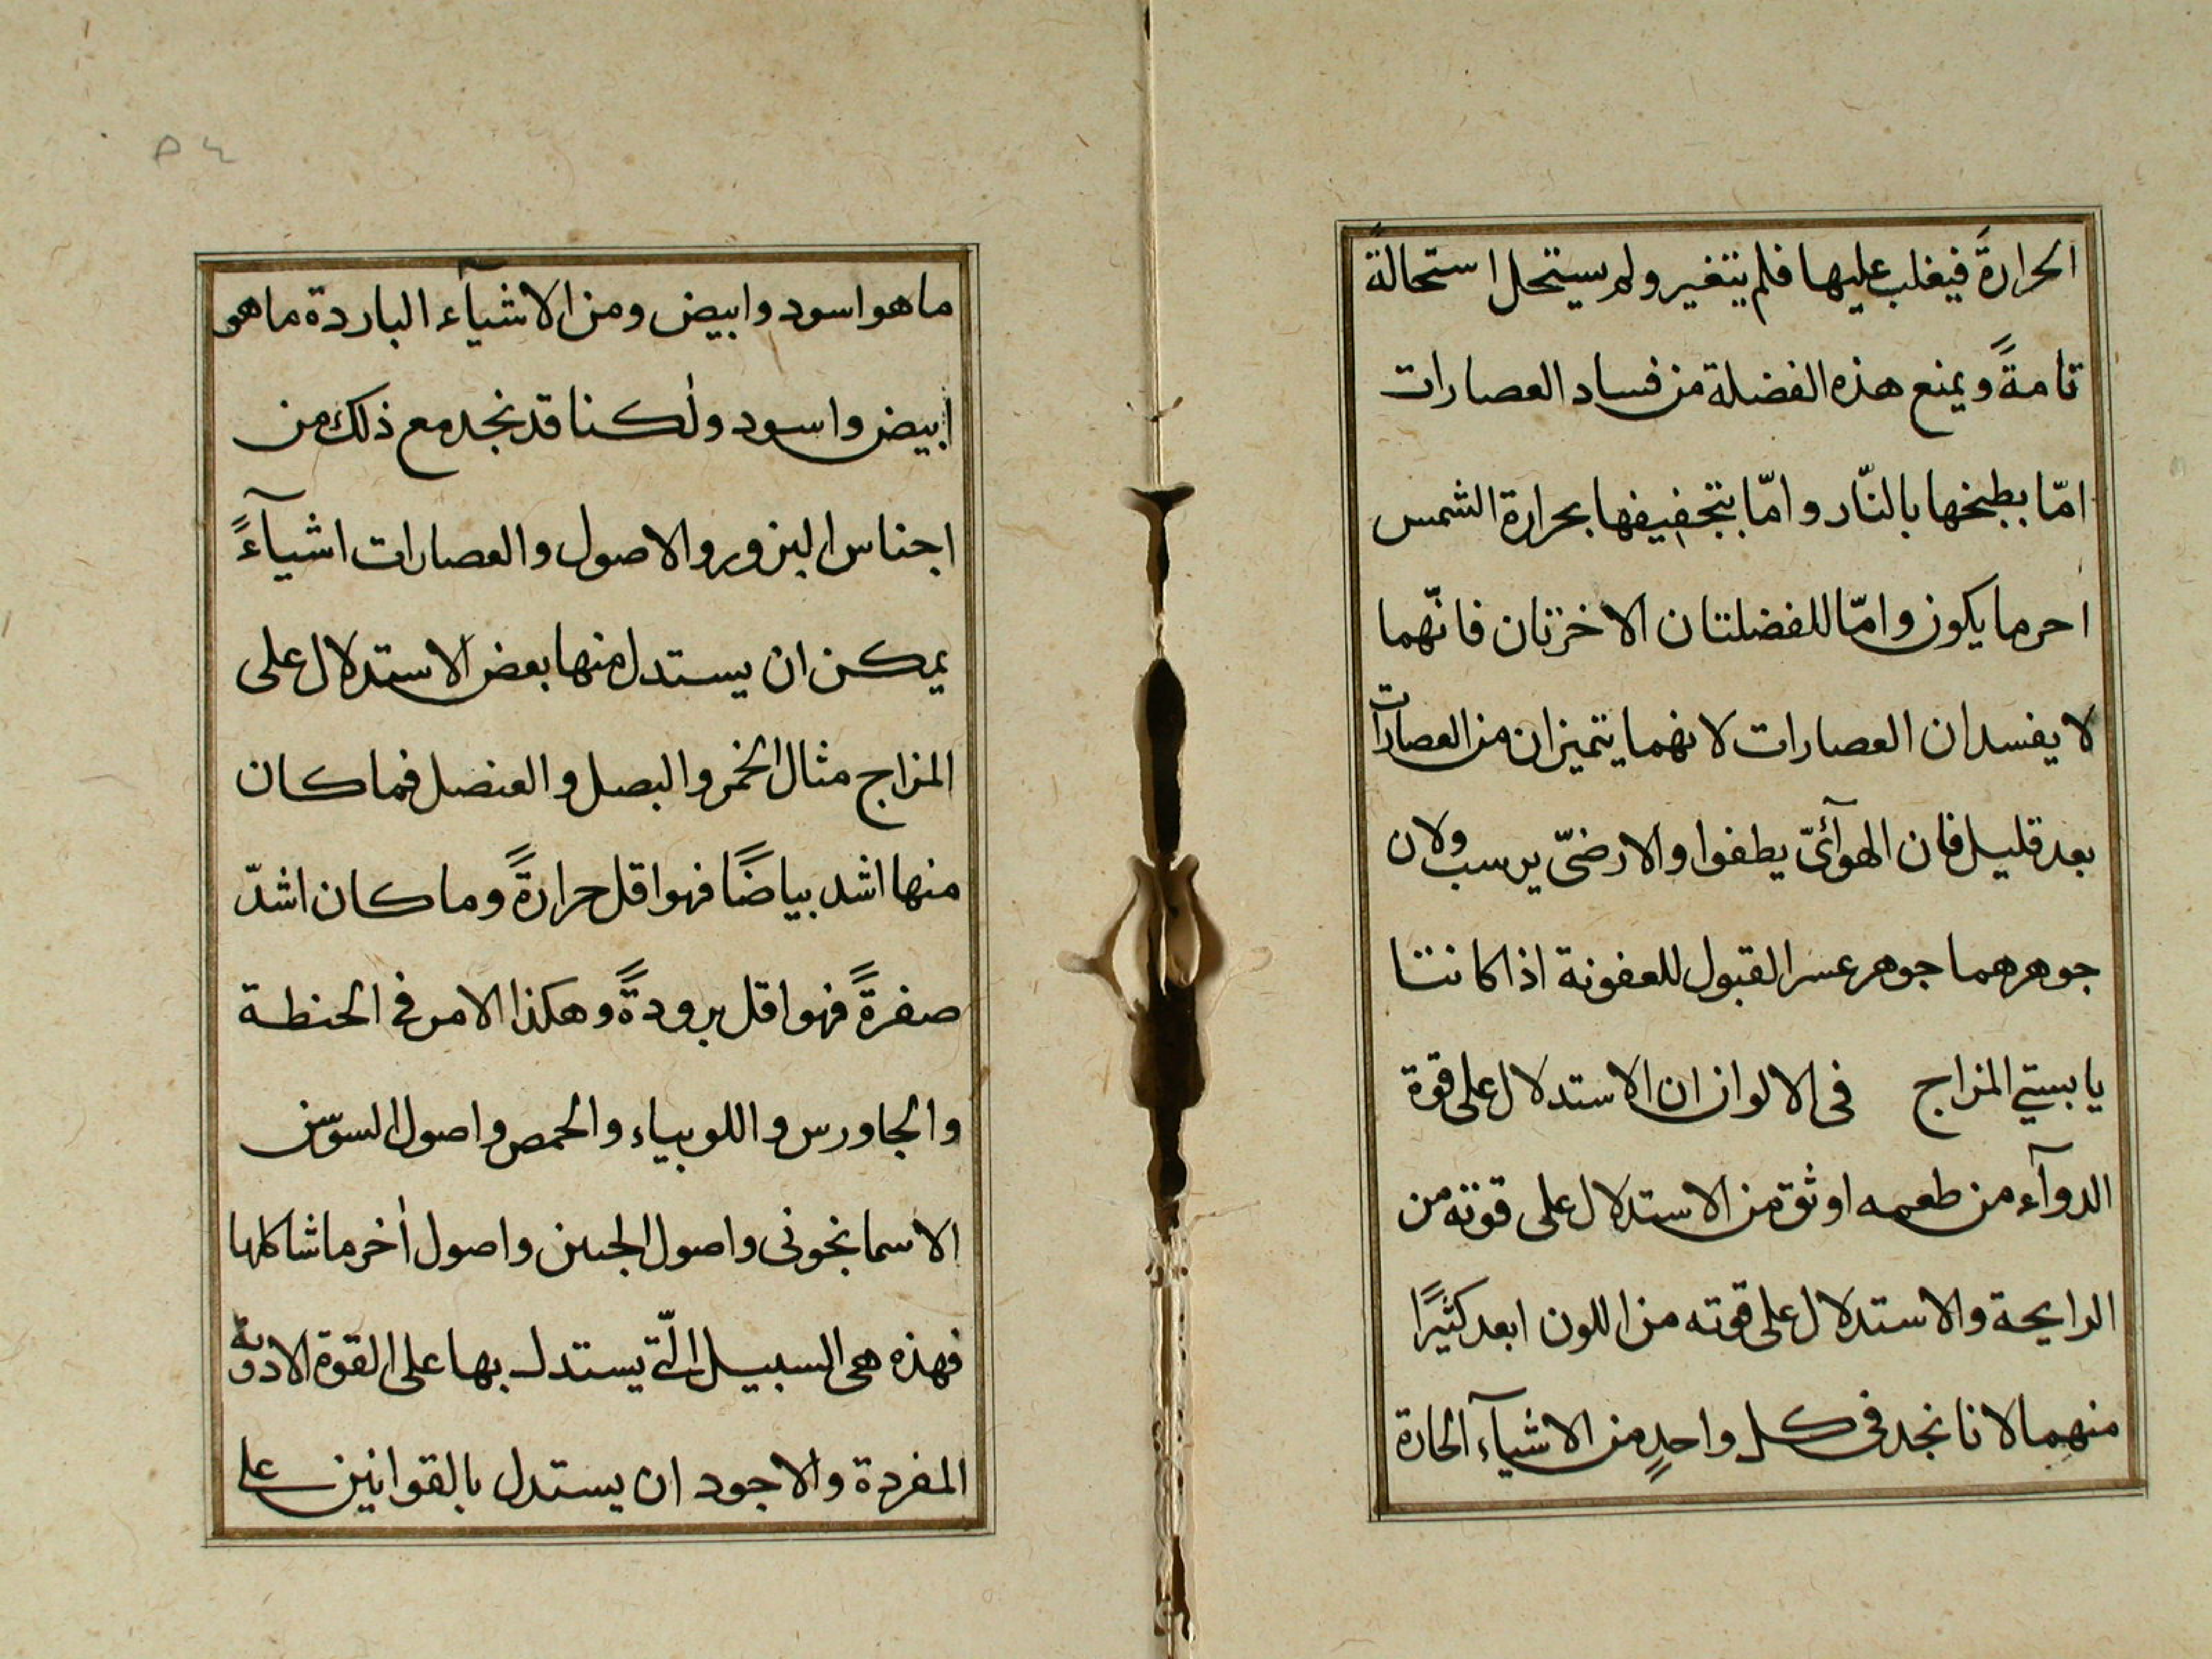 الحرارةَ فيغلب عليها فلم يتغير ولم يستحل استحالةً
تامةً ويمنع هذه الفضلة من فساد العصارات
امّا بطبخها بالنّار وامّا بتجفيفها بحرارة الشمس
احر ما يكون وامّا للفضلتان الاخرتان فانّهما
لا يفسدان العصارات لانهما يتميزان من العصارات
بعد قليل فان الهوآئىّ يطفوا والارضىّ يرسب ولان
جوهرهما جوهر عسر القبول للعفونة اذا كانتا
يابستي المزاج فى الالوان ان الاستدلال على قوة
الدوآء من طعمه اوثق من الاستدلال على قوته من
الرايحة والاستدلال على قوته من اللون ابعد كثيرًا
منهما لانا نجد فى كل واحدٍ من الاشيآء الحارة
ما هو اسود وابيض ومن الاشيآء الباردة ما هى
ابيض واسود ولٰكننا قد نجد مع ذلك من
اجناس البزور والاصول والعصارات اشيآءً
يمكن ان يستدل منها بعض الاستدلال على
المزاج مثال الخمر والبصل والعنصل فما كان
منها اشد بياضًا فهو اقل حرارةً وما كان اشدّ
صفرةً فهو اقل برودةً وهكذا الامر في الحنطة
والجاورس واللوبياء والحمص واصول السوسن
الاسمانجونى واصول الجبن واصول أخر ما شاكلها
فهذه هى السبيل الّتي يستدل بها على القوة الادوية
المفردة والاجود ان يستدل بالقوانين على
٥٤